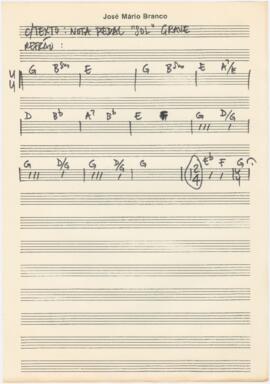 José Mário Branco
C/TEXTO : NOTA PEDAL "SOL" GRAVE
REFRÃO :
4/4 G E G E A7/E
D Bb A7 Bb E G D/G
G D/G G D/G G 2/4 Eb F G 4/4